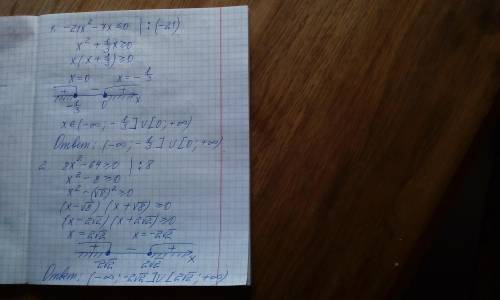 1. -21x² - 7x ≤ 0 | : (-21)
x² + 1/3 x ≥ 0
x(x + 1/3) ≥ 0
x = 0 x = -1/3
+ - +
-1/3 0 x
x ∈ (-∞; -1/3] ∪ [0; +∞)
Ответ: (-∞; -1/3] ∪ [0; +∞)
2. 8x² - 64 ≥ 0 | : 8
x² - 8 ≥ 0
x² - (√8)² ≥ 0
(x - √8) (x + √8) ≥ 0
(x - 2√2) (x + 2√2) ≥ 0
x = 2√2 x = -2√2
+ - +
-2√2 2√2 x
Ответ: (-∞; -2√2] ∪ [2√2; +∞)